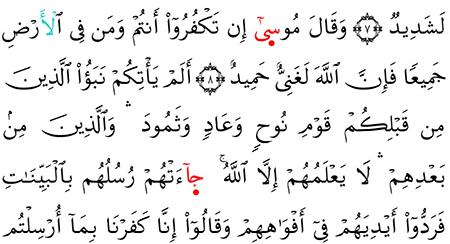 لَشَدِيدٌ ٧ وَقَالَ مُوسَىٰٓ إِن تَكْفُرُوٓا۟ أَنتُمْ وَمَن فِى ٱلْأَرْضِ
جَمِيعًا فَإِنَّ ٱللَّهَ لَغَنِىٌّ حَمِيدٌ ٨ أَلَمْ يَأْتِكُمْ نَبَؤُا۟ ٱلَّذِينَ
مِن قَبْلِكُمْ قَوْمِ نُوحٍ وَعَادٍ وَثَمُودَ ۛ وَٱلَّذِينَ مِنۢ
بَعْدِهِمْ ۛ لَا يَعْلَمُهُمْ إِلَّا ٱللَّهُ ۚ جَآءَتْهُمْ رُسُلُهُم بِٱلْبَيِّنَـٰتِ
فَرَدُّوٓا۟ أَيْدِيَهُمْ فِىٓ أَفْوَٰهِهِمْ وَقَالُوٓا۟ إِنَّا كَفَرْنَا بِمَآ أُرْسِلْتُم